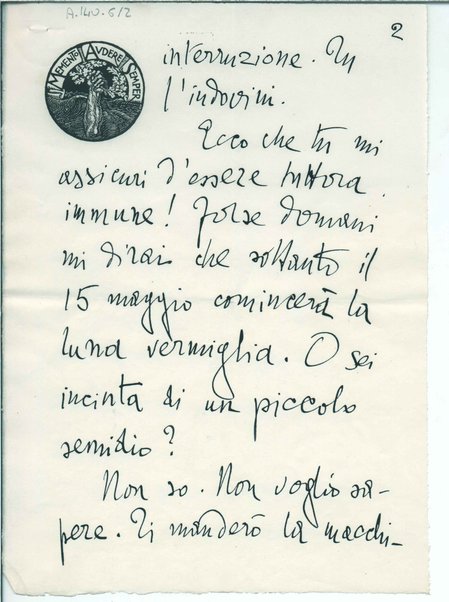 A.140.6/2
2
MEMENTO AVDERE SEMPER
interruzione. Tu
l'indovini.
Ecco che tu mi
assicuri d'essere tuttora
immune! Forse domani
mi dirai che soltanto il
15 maggio comincerà la
luna vermiglia. O sei
incinta di un piccolo
semidio?
Non so. Non voglio sa-
pere. Ti manderò la macchi-